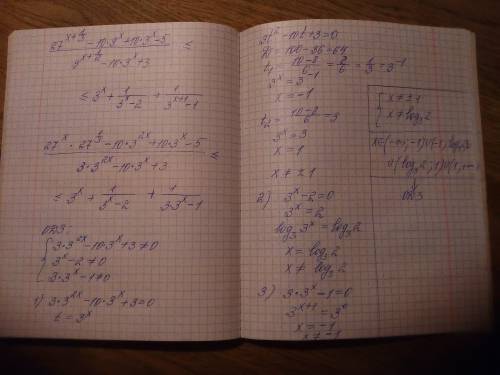 27^(x+1/3) - 10·9^x + 10·3^x - 5 / 9^(x+1/2) - 10·3^x + 3 ≤
≤ 3^x + 1/(3^x - 2) + 1/(3^(x+1) - 1)
27^x · 27^(1/3) - 10·3^(2x) + 10·3^x - 5 / 3·3^(2x) - 10·3^x + 3 ≤
≤ 3^x + 1/(3^x - 2) + 1/(3·3^x - 1)
ОДЗ:
3·3^(2x) - 10·3^x + 3 ≠ 0
3^x - 2 ≠ 0
3·3^x - 1 ≠ 0
1) 3·3^(2x) - 10·3^x + 3 = 0
t = 3^x
3t² - 10t + 3 = 0
D = 100 - 36 = 64
t₁ = (10-8)/6 = 2/6 = 1/3 = 3^(-1)
3^x = 3^(-1)
x = -1
t₂ = (10+8)/6 = 3
3^x = 3
x = 1
x ≠ ±1
2) 3^x - 2 = 0
3^x = 2
log₃ 3^x = log₃ 2
x = log₃ 2
x ≠ log₃ 2
3) 3·3^x - 1 = 0
3^(x+1) = 3^0
x = -1
x ≠ -1
x ≠ ±1
x ≠ log₃ 2
x ∈ (-∞; -1) ∪ (-1; log₃ 2) ∪
∪ (log₃ 2; 1) ∪ (1; +∞)
ОДЗ